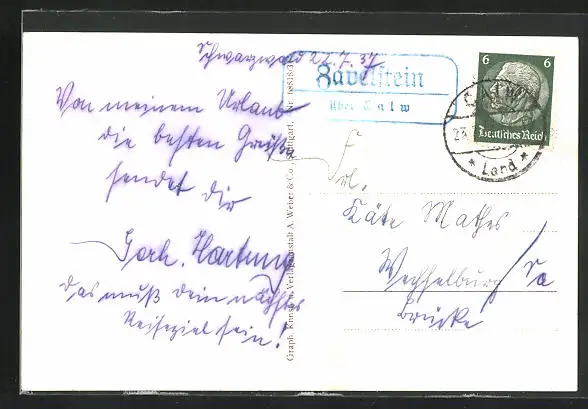 Schwarzwald 22.7.37
Von meinem Urlaub
die besten Grüße
sendet dir
Gerh. Hartung
das muß dein nächstes
Reiseziel sein!
Graph. Kunst- u. Verlagsanstalt A. Weber & Co., Stuttgart, Nr.
Zavelstein
über Calw
6 6
Deutsches Reich
CALW
23.
* Land *
Frl.
Käte Mathes
Wechselburg/Sa
Brücke